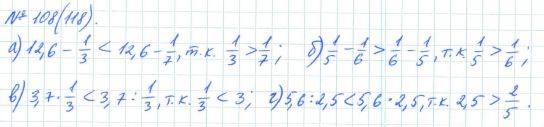 № 108(118).
а) 12,6 - 1/3 < 12,6 - 1/7, т.к. 1/3 > 1/7; б) 1/5 - 1/6 > 1/6 - 1/5, т.к 1/5 > 1/6;
в) 3,7 · 1/3 < 3,7 : 1/3, т.к. 1/3 < 3; г) 5,6 : 2,5 < 5,6 · 2,5, т.к. 2,5 > 2/5.